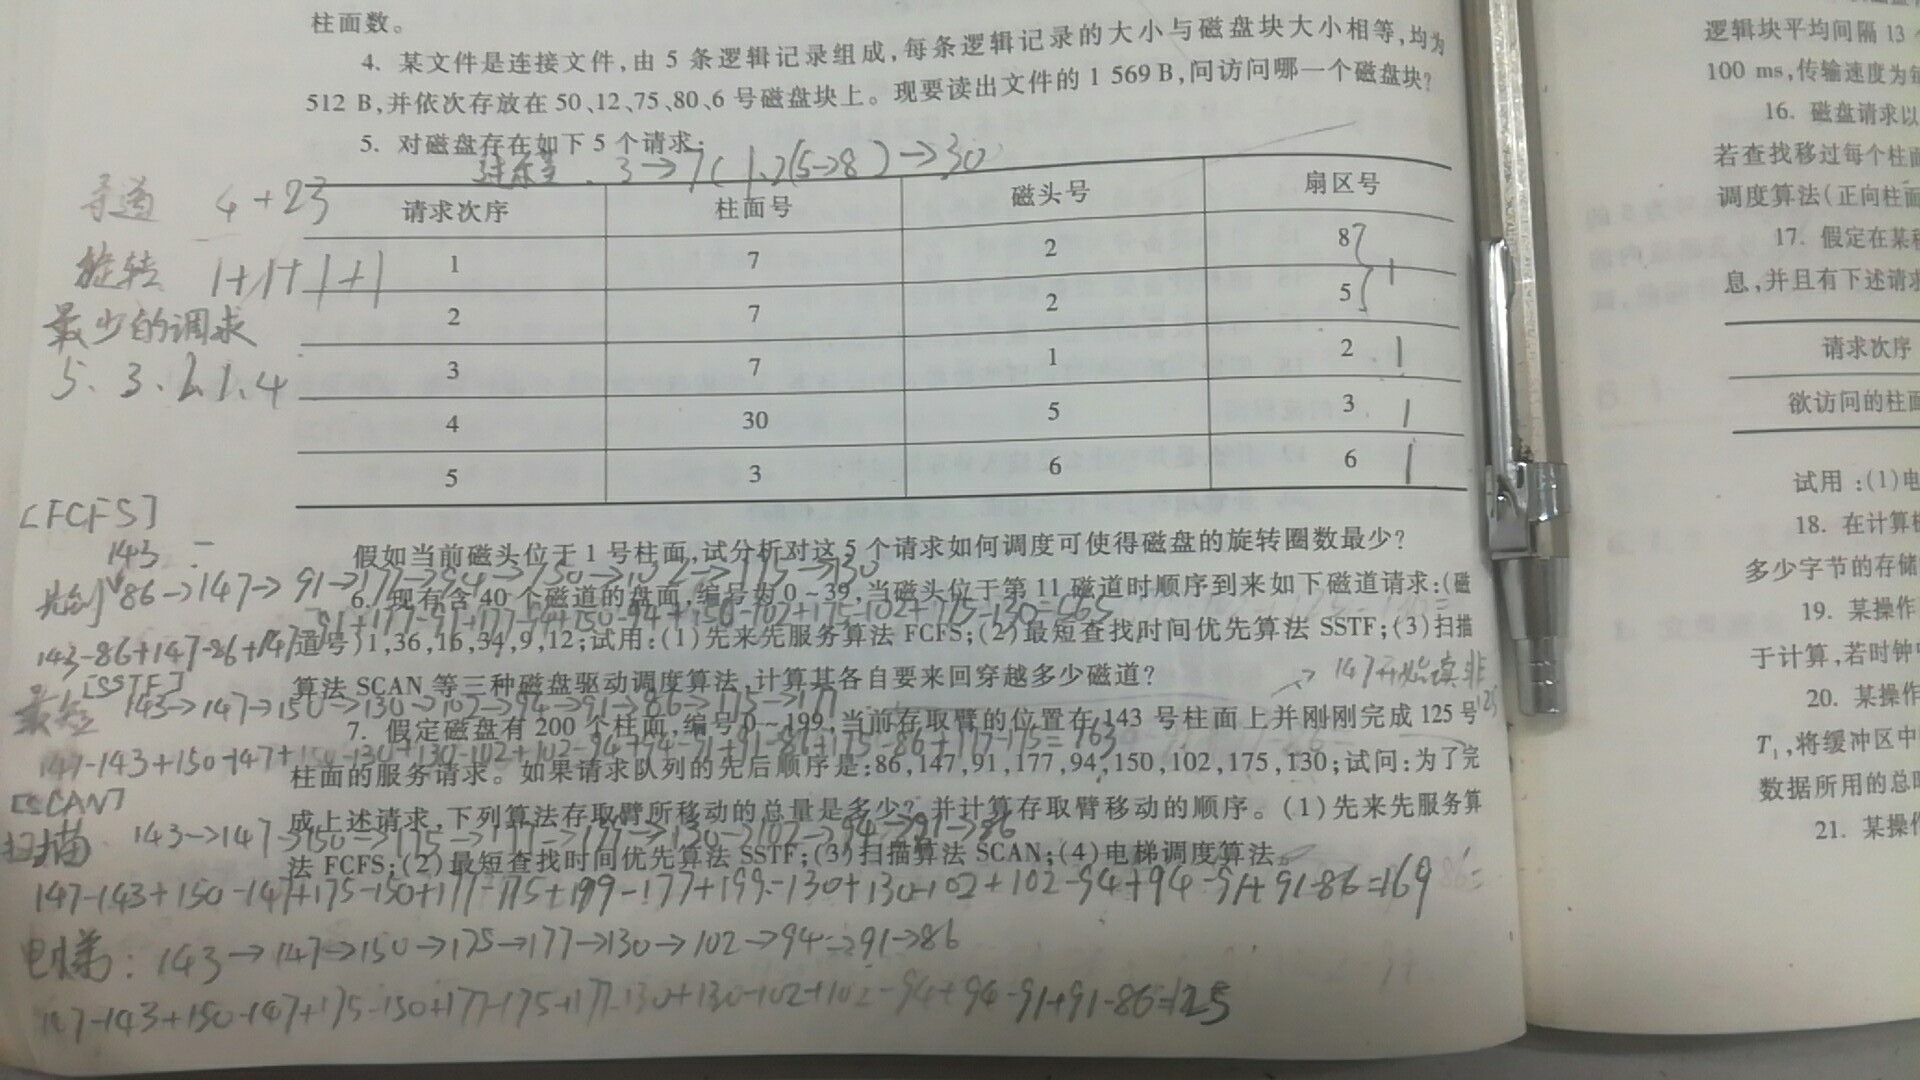 柱面数。
4. 某文件是连接文件,由 5 条逻辑记录组成,每条逻辑记录的大小与磁盘块大小相等,均为
512 B,并依次存放在 50、12、75、80、6 号磁盘块上。现要读出文件的 1 569 B,问访问哪一个磁盘块?
5. 对磁盘存在如下 5 个请求:
3→7(1、2(5→8)→30
寻道 4+23
请求次序 柱面号 磁头号 扇区号
1 7 2 8
旋转 1+1+1+1
2 7 2 5 1
最少的调求
3 7 1 2 1
5、3、2、1、4
4 30 5 3 1
5 3 6 6 1
[FCFS]
假如当前磁头位于 1 号柱面,试分析对这 5 个请求如何调度可使得磁盘的旋转圈数最少?
143
86→147→91→177→94→150→102→175→130
6. 现有含 40 个磁道的盘面,编号为 0~39,当磁头位于第 11 磁道时顺序到来如下磁道请求:(磁
143-86+147-86+147-91+177-91+177-94+150-94+150-102+175-102+175-130=565
道号)1,36,16,34,9,12;试用:(1)先来先服务算法 FCFS;(2)最短查找时间优先算法 SSTF;(3)扫描
算法 SCAN 等三种磁盘驱动调度算法,计算其各自要来回穿越多少磁道?
[SSTF]
最短 143→147→150→130→102→94→91→86→175→177
7. 假定磁盘有 200 个柱面,编号 0~199,当前存取臂的位置在 143 号柱面上并刚刚完成 125 号
147-143+150-147+150-130+130-102+102-94+94-91+91-86+175-86+177-175=163
柱面的服务请求。如果请求队列的先后顺序是:86,147,91,177,94,150,102,175,130;试问:为了完
[SCAN]
成上述请求,下列算法存取臂所移动的总量是多少?并计算存取臂移动的顺序。(1)先来先服务算
扫描 143→147→150→175→177→199→130→102→94→91→86
法 FCFS;(2)最短查找时间优先算法 SSTF;(3)扫描算法 SCAN;(4)电梯调度算法。
147-143+150-147+175-150+177-175+199-177+199-130+130-102+102-94+94-91+91-86=169
电梯:143→147→150→175→177→130→102→94→91→86
147-143+150-147+175-150+177-175+177-130+130-102+102-94+94-91+91-86=125
逻辑块平均间隔 13
100 ms,传输速度为每
16. 磁盘请求以
若查找移过每个柱面
调度算法(正向柱面
17. 假定在某种
息,并且有下述请求
请求次序
欲访问的柱面
试用:(1)电
18. 在计算机
多少字节的存储
19. 某操作
于计算,若时钟中
20. 某操作
T₁,将缓冲区中
数据所用的总时
21. 某操作